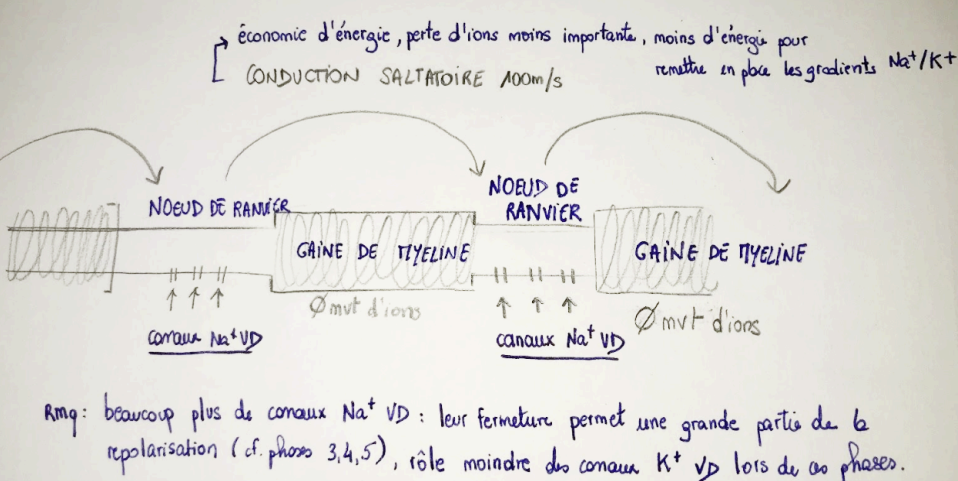 économie d'énergie, perte d'ions moins importante, moins d'énergie pour
remettre en place les gradients Na⁺/K⁺
CONDUCTION SALTATOIRE 100m/s
NOEUD DE RANVIER
NOEUD DE
RANVIER
GAINE DE MYELINE
GAINE DE MYELINE
Ø mvt d'ions
Ø mvt d'ions
canaux Na⁺ VD
canaux Na⁺ VD
Rmq: beaucoup plus de canaux Na⁺ VD : leur fermeture permet une grande partie de la
repolarisation (cf. phases 3,4,5), rôle moindre des canaux K⁺ VD lors de ces phases.